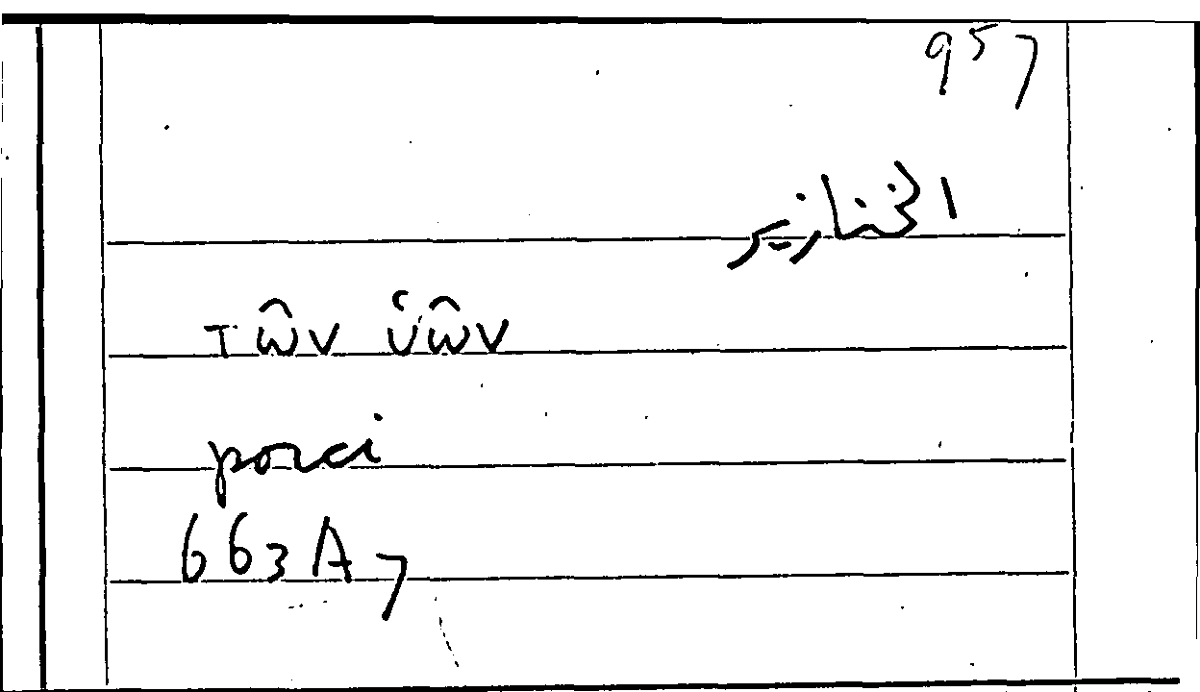 957
الخنازير
τῶν ὑῶν
porci
663A7